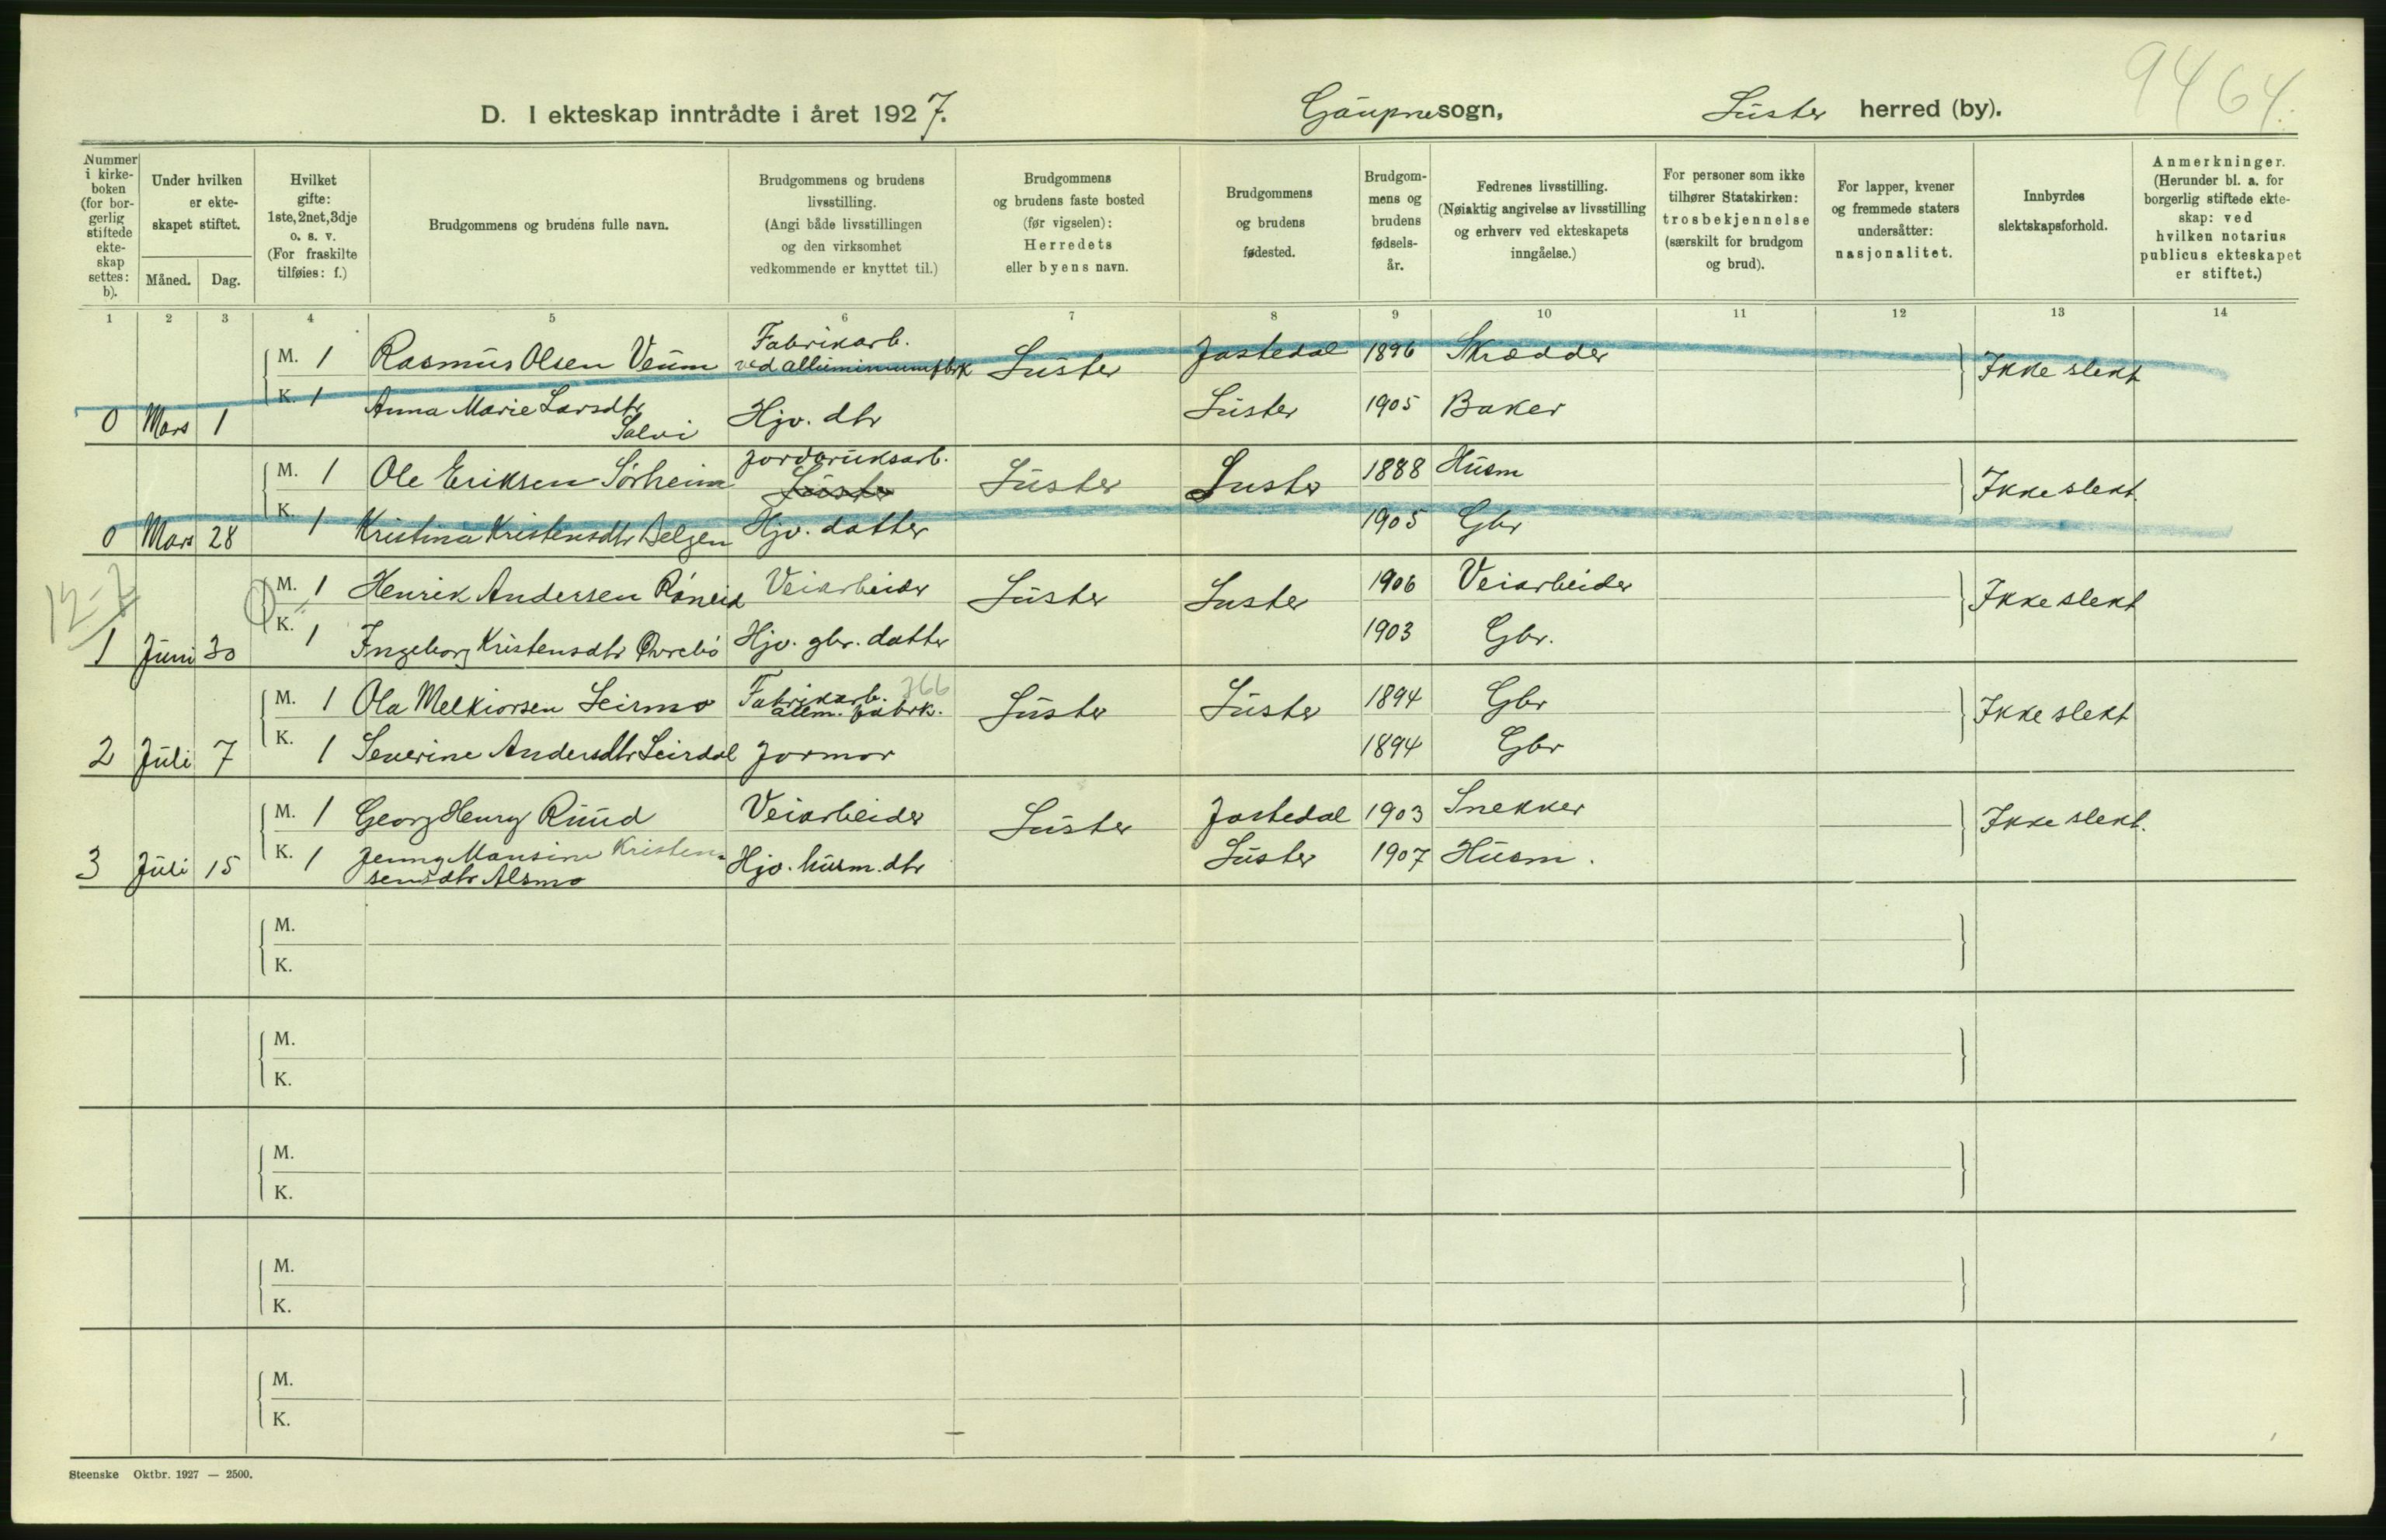 9464.
D. I ekteskap inntrådte i året 1927. Gaupne sogn, Luster herred (by).
Nummer i kirkeboken (for borgerlig stiftede ekteskap settes: b).
Under hvilken er ekteskapet stiftet.
Måned. Dag.
Hvilket gifte: 1ste, 2net, 3dje o. s. v. (For fraskilte tilføies: f.)
Brudgommens og brudens fulle navn.
Brudgommens og brudens livsstilling. (Angi både livsstillingen og den virksomhet vedkommende er knyttet til.)
Brudgommens og brudens faste bosted (før vigselen): Herredets eller byens navn.
Brudgommens og brudens fødested.
Brudgommens og brudens fødselsår.
Fedrenes livsstilling. (Nøiaktig angivelse av livsstilling og erhverv ved ekteskapets inngåelse.)
For personer som ikke tilhører Statskirken: trosbekjennelse (særskilt for brudgom og brud).
For lapper, kvener og fremmede staters undersåtter: nasjonalitet.
Innbyrdes slektskapsforhold.
Anmerkninger. (Herunder bl. a. for borgerlig stiftede ekteskap: ved hvilken notarius publicus ekteskapet er stiftet.)
1 2 3 4 5 6 7 8 9 10 11 12 13 14
M. 1 Rasmus Olsen Veum Fabrikarb. ved alluminiumfbrk Luster Jostedal 1896 Skrædder Ikke slekt
0 Mars 1 K. 1 Anna Marie Larsdtr Salvi Hjv. dtr Luster 1905 Baker
M. 1 Ole Eriksen Sørheim Jordbruksarb. Luster Luster Luster 1888 Husm Ikke slekt
0 Mars 28 K. 1 Kristina Kristensdtr Helgen Hjv. datter 1905 Gbr
12-7
M. 1 Henrik Andersen Røneid Veiarbeider Luster Luster 1906 Veiarbeider Ikke slekt
1 Juni 30 K. 1 Ingeborg Kristensdtr Øvrebø Hjv. gbr. datter 1903 Gbr.
M. 1 Ola Melkiorsen Leirmo Fabrikarb. alum. fabrk. 766 Luster Luster 1894 Gbr Ikke slekt
2 Juli 7 K. 1 Severine Andersdtr Leirdal Jormor 1894 Gbr
M. 1 Georg Henry Ruud Veiarbeider Luster Jostedal 1903 Snekker Ikke slekt.
3 Juli 15 K. 1 Jenny Mansine Kristensensdtr Alsmo Hjv. husm. dtr Luster 1907 Husm.
M.
K.
M.
K.
M.
K.
M.
K.
M.
K.
Steenske Oktbr. 1927 — 2500.